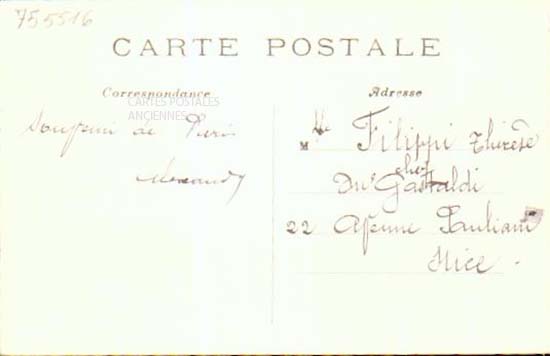 755516
CARTE POSTALE
Correspondance
CARTES POSTALES
ANCIENNES
Adresse
de Paris
Mlle Filippi Thérèse
chez
Gastaldi
22 Avenue Pauliani
Nice